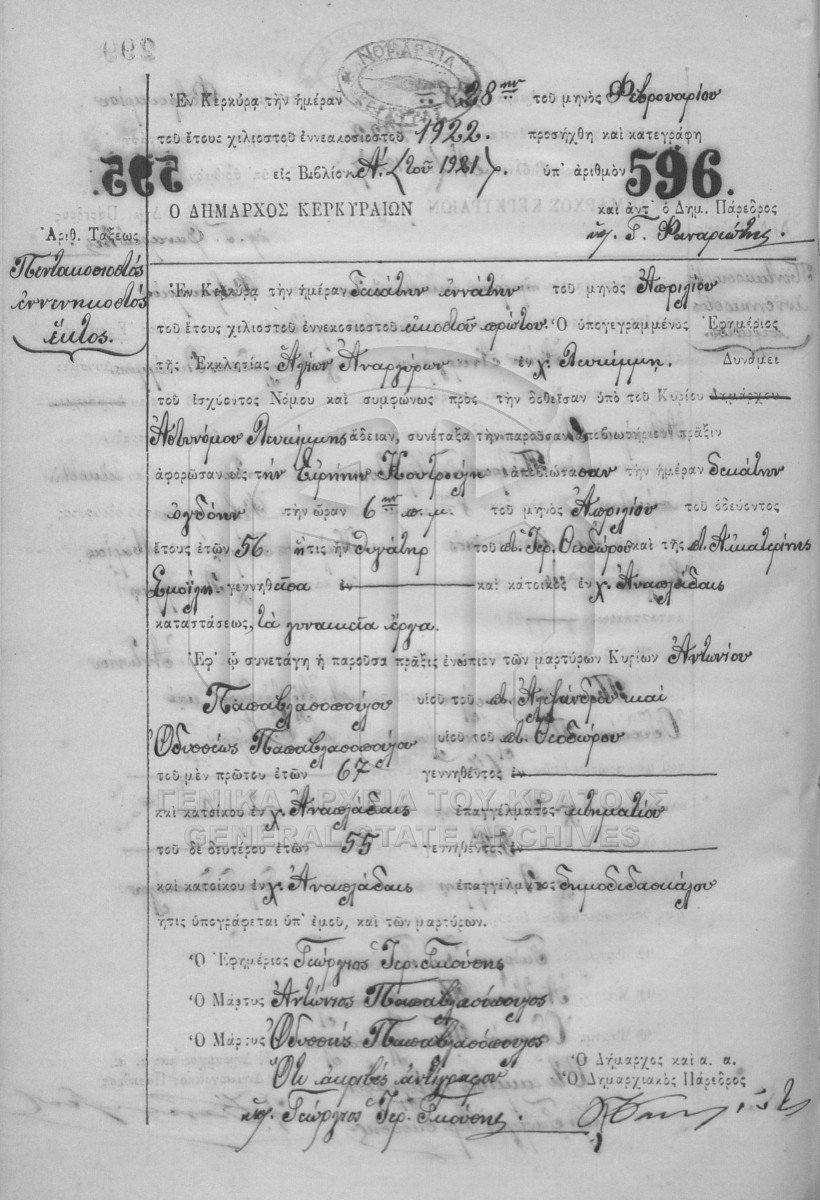 ΝΟΜΑΡΧΙΑ
Ἐν Κερκύρᾳ τὴν ἡμέραν 28ην τοῦ μηνὸς Φεβρουαρίου
τοῦ ἔτους χιλιοστοῦ ἐννεακοσιοστοῦ 1922. προσήχθη καὶ κατεγράφη
595. εἰς Βιβλίον Α. (τοῦ 1921). ὑπ' ἀριθμὸν 596.
Ο ΔΗΜΑΡΧΟΣ ΚΕΡΚΥΡΑΙΩΝ καὶ ἀντ' ὁ Δημ. Πάρεδρος
Γ. Φαναριώτης
Ἀριθ. Τάξεως
Πεντακοσιοστός
ἐννενηκοστός
ἕκτος.
Ἐν Κερκύρᾳ τὴν ἡμέραν δεκάτην ἐννάτην τοῦ μηνὸς Ἀπριλίου
τοῦ ἔτους χιλιοστοῦ ἐννεκοσιοστοῦ εἰκοστοῦ πρώτου. Ὁ ὑπογεγραμμένος Ἐφημέριος
τῆς Ἐκκλησίας Ἁγίων Ἀναργύρων ἐν χ. Λευκίμμῃ. Δυνάμει
τοῦ ἰσχύοντος Νόμου καὶ συμφώνως πρὸς τὴν δοθεῖσαν ὑπὸ τοῦ Κυρίου Δημάρχου
Ἀστυνόμου Λευκίμμης ἄδειαν, συνέταξα τὴν παροῦσαν ἀποβιωτήριον πρᾶξιν
ἀφορῶσαν εἰς τὴν Εἰρήνην ἀποβιώσασαν τὴν ἡμέραν δεκάτην
ὀγδόην τὴν ὥραν 6ην π.μ. τοῦ μηνὸς Ἀπριλίου τοῦ ὁδεύοντος
ἔτους ἐτῶν 56 ἥτις ἦν θυγάτηρ τοῦ π. Ἱερ. Θεοδώρου καὶ τῆς π. Αἰκατερίνης
γεννηθεῖσα ἐν καὶ κάτοικος ἐν χ. Ἀναπλάδαις
καταστάσεως, τὰ γυναικεῖα ἔργα.
Ἐφ' ᾧ συνετάγη ἡ παροῦσα πρᾶξις ἐνώπιον τῶν μαρτύρων Κυρίων Ἀντωνίου
Παπαβλασοπούλου υἱοῦ τοῦ π. Ἀλεξάνδρου καὶ
Ὀδυσσέως Παπαβλασοπούλου υἱοῦ τοῦ π. Θεοδώρου
τοῦ μὲν πρώτου ἐτῶν 67 γεννηθέντος ἐν
ΓΕΝΙΚΑ ΑΡΧΕΙΑ ΤΟΥ ΚΡΑΤΟΥΣ
καὶ κατοίκου ἐν χ. Ἀναπλάδαις ἐπαγγέλματος κτηματίου
GENERAL STATE ARCHIVES
τοῦ δὲ δευτέρου ἐτῶν 55 γεννηθέντος ἐν
καὶ κατοίκου ἐν χ. Ἀναπλάδαις ἐπαγγέλματος δημοδιδασκάλου
ἥτις ὑπογράφεται ὑπ' ἐμοῦ, καὶ τῶν μαρτύρων.
Ὁ Ἐφημέριος Γεώργιος Ἱερ. Σκούσης
Ὁ Μάρτυς Ἀντώνιος Παπαβλασόπουλος
Ὁ Μάρτυς Ὀδυσσεύς Παπαβλασόπουλος
Ὅτι ἀκριβές ἀντίγραφον
Ὁ Δήμαρχος καὶ α. α.
Ὁ Δημαρχιακὸς Πάρεδρος
Γεώργιος Ἱερ. Σκούσης.